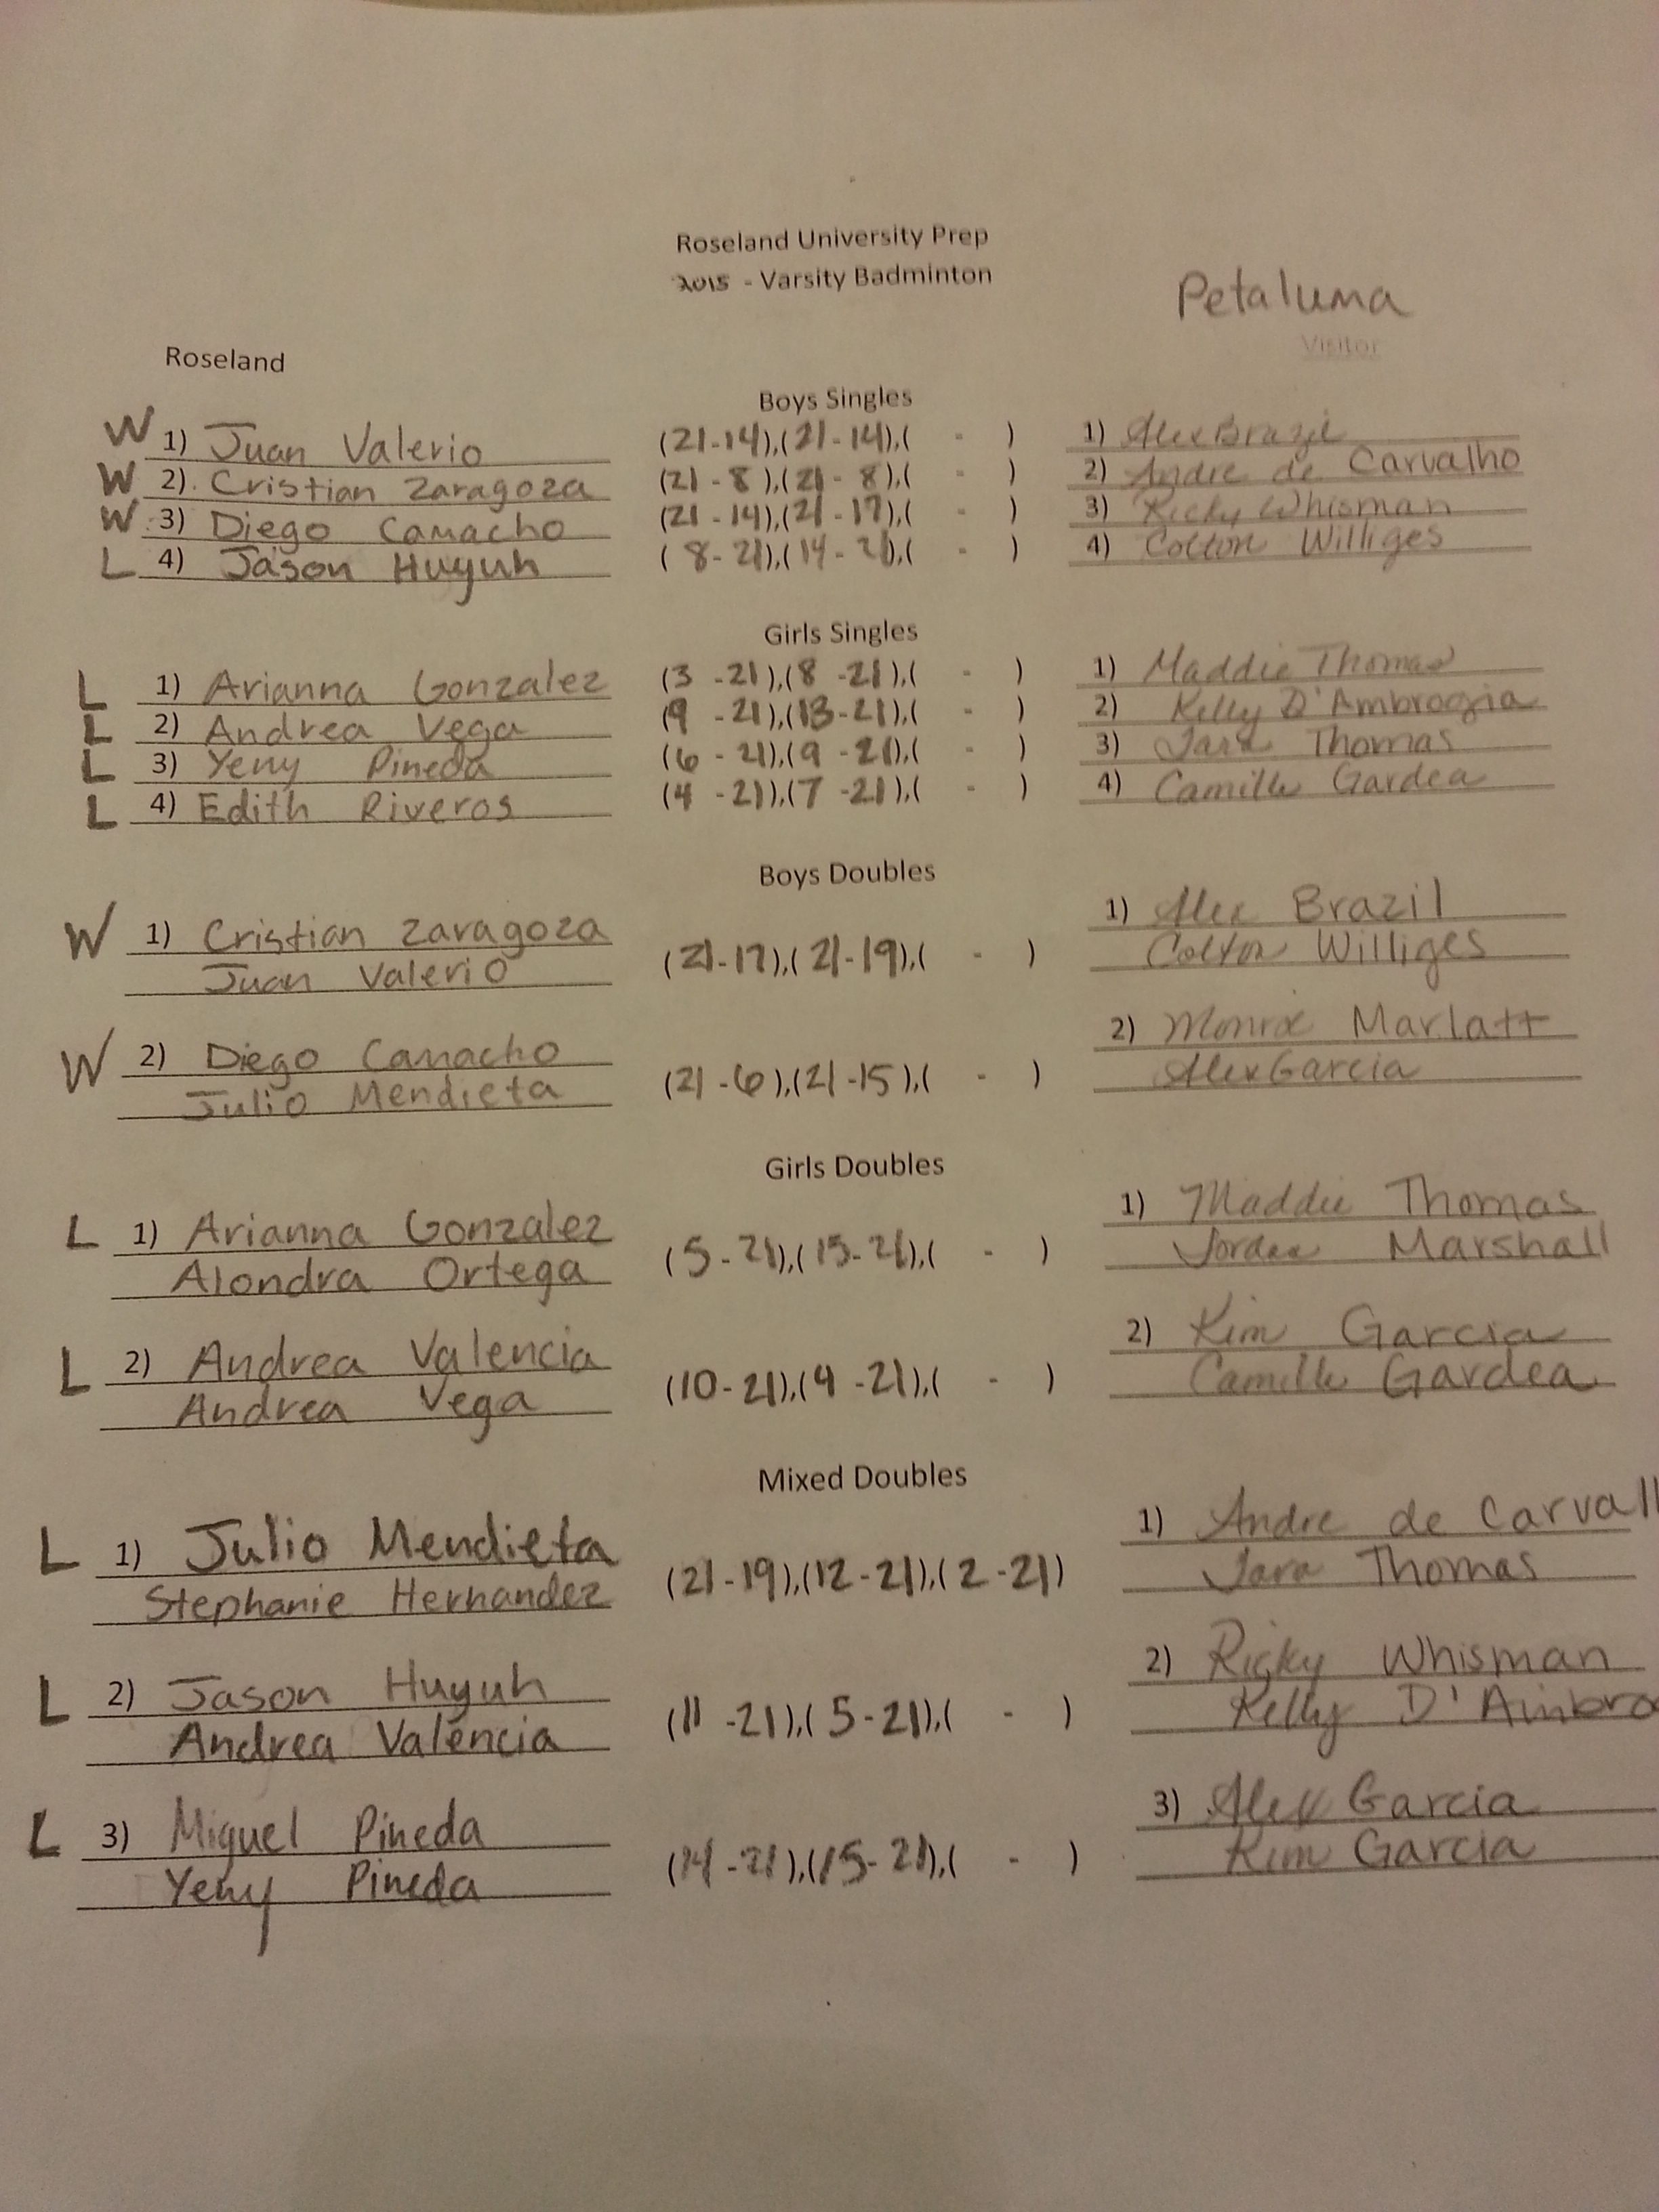 Roseland University Prep
2015 - Varsity Badminton
Petaluma
Visitor
Roseland
Boys Singles
W 1) Juan Valerio (21-14),(21-14),( - ) 1) Alex Brazil
W 2) Cristian Zaragoza (21-8),(21-8),( - ) 2) Andre de Carvalho
W 3) Diego Camacho (21-14),(21-17),( - ) 3) Ricky Whisman
L 4) Jason Huyuh (8-21),(14-21),( - ) 4) Colton Williges
Girls Singles
L 1) Arianna Gonzalez (3-21),(8-21),( - ) 1) Maddie Thomas
L 2) Andrea Vega (9-21),(13-21),( - ) 2) Kelly D'Ambrogia
L 3) Yeny Pineda (6-21),(9-21),( - ) 3) Tara Thomas
L 4) Edith Riveros (4-21),(7-21),( - ) 4) Camille Gardea
Boys Doubles
W 1) Cristian Zaragoza (21-17),(21-19),( - ) 1) Alex Brazil
Juan Valerio Colton Williges
W 2) Diego Camacho (21-6),(21-15),( - ) 2) Monroe Marlatt
Julio Mendieta Alex Garcia
Girls Doubles
L 1) Arianna Gonzalez (5-21),(15-21),( - ) 1) Maddie Thomas
Alondra Ortega Jordan Marshall
L 2) Andrea Valencia (10-21),(9-21),( - ) 2) Kim Garcia
Andrea Vega Camille Gardea
Mixed Doubles
L 1) Julio Mendieta (21-19),(12-21),(2-21) 1) Andre de Carvall
Stephanie Hernandez Tara Thomas
L 2) Jason Huyuh (11-21),(5-21),( - ) 2) Ricky Whisman
Andrea Valencia Kelly D'Ambro
L 3) Miguel Pineda (14-21),(15-21),( - ) 3) Alex Garcia
Yeny Pineda Kim Garcia